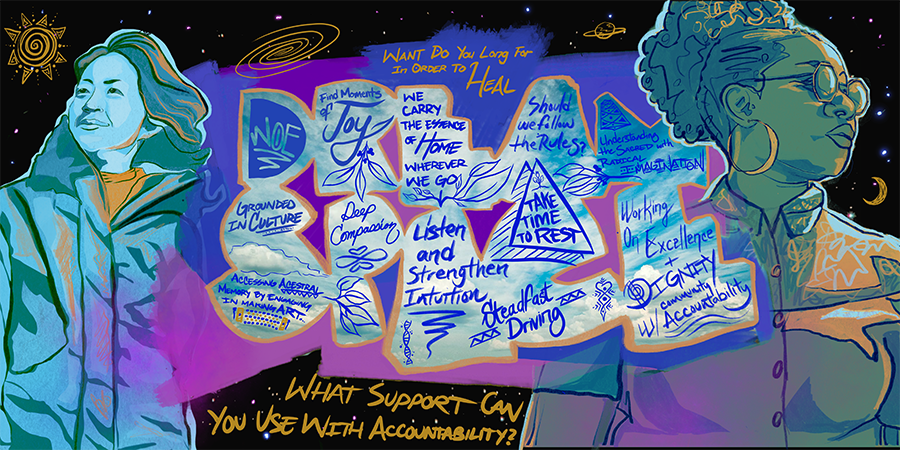 WANT DO YOU LONG FOR
IN ORDER TO HEAL
DREAM
SPACE
WOE
Find Moments
of Joy
WE
CARRY
THE ESSENCE
OF HOME
WHEREVER
WE GO!
Should
we follow
the Rules?
Understanding
the SACRED with
RADICAL
IMAGINATION
GROUNDED
IN CULTURE
Deep
Compassion
Listen
and
Strengthen
Intuition
TAKE
TIME
TO REST
Working
On Excellence
+
DIGNITY
COMMUNITY
W/ Accountability
ACCESSING ACESTRAL
MEMORY BY ENGAGING
IN MAKING ART..
SteadFast
Driving
WHAT SUPPORT CAN
YOU USE WITH ACCOUNTABILITY?